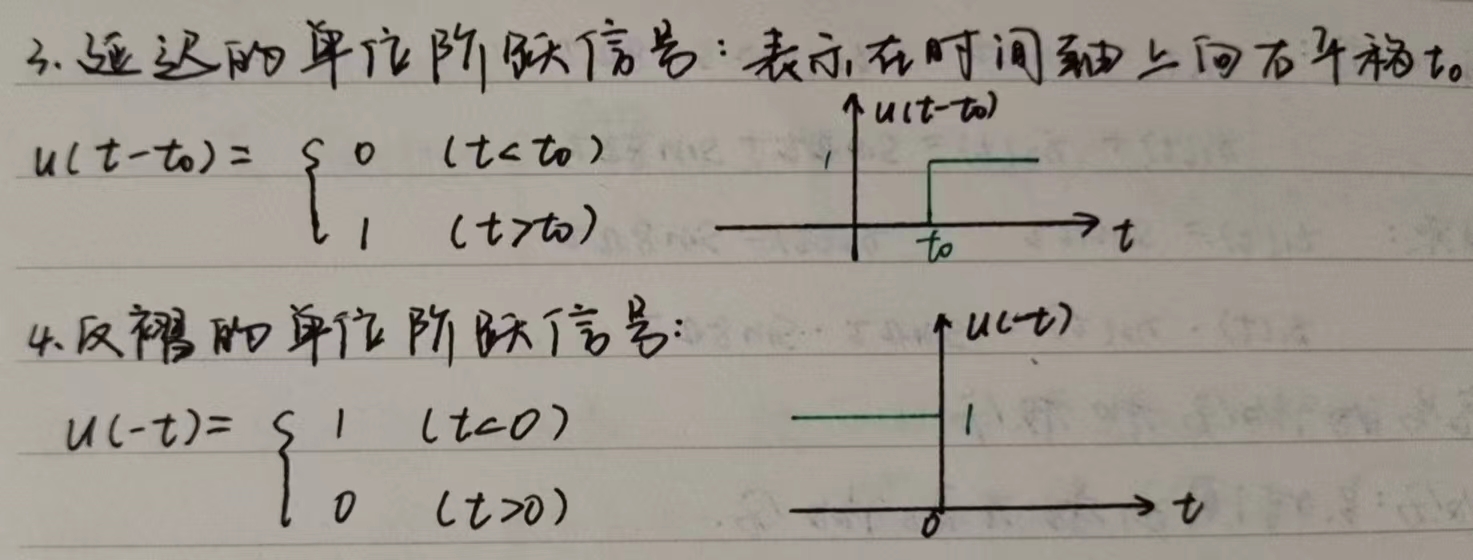 3.延迟的单位阶跃信号：表示在时间轴上向右平移t₀
u(t-t₀)= { 0 (t<t₀)
1 (t>t₀)
u(t-t₀)
1
t₀
t
4.反褶的单位阶跃信号：
u(-t)= { 1 (t<0)
0 (t>0)
u(-t)
1
0
t